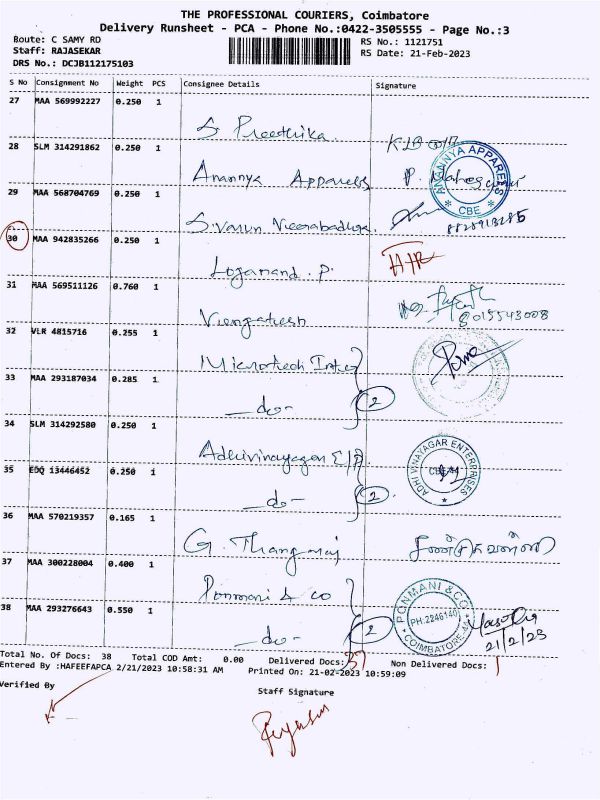 THE PROFESSIONAL COURIERS, Coimbatore
Delivery Runsheet - PCA - Phone No.:0422-3505555 - Page No.:3
Route: C SAMY RD
RS No.: 1121751
Staff: RAJASEKAR
RS Date: 21-Feb-2023
DRS No.: DCJB112175103
S No Consignment No Weight PCS Consignee Details Signature
27 MAA 569992227 0.250 1
S. Preethika.
28 SLM 314291862 0.250 1
Anannya Apparels P. Maheswari
ANANNYA APPARELS
* CBE *
29 MAA 568704769 0.250 1
S. Varun Veerabadhra.
30 MAA 942835266 0.250 1
Loganand. P.
31 MAA 569511126 0.760 1
Vengatesh 8015543008
32 VLR 4815716 0.255 1
Microtech Inter
33 MAA 293187034 0.285 1
2
-do-
34 SLM 314292580 0.250 1
Adhivinayagar E/P
ADHI VINAYAGAR ENTERPRISES
35 EDQ 13446452 0.250 1
2
-do-
36 MAA 570219357 0.165 1
G. Thangaraj
37 MAA 300228004 0.400 1
Ponmani & co
PONMANI & CO.
PH:2246140
38 MAA 293276643 0.550 1
2
-do-
21/2/23
Total No. Of Docs: 38 Total COD Amt: 0.00 Delivered Docs: 37 Non Delivered Docs: 1
Entered By :HAFEEFAPCA 2/21/2023 10:58:31 AM Printed On: 21-02-2023 10:59:09
Verified By
Staff Signature